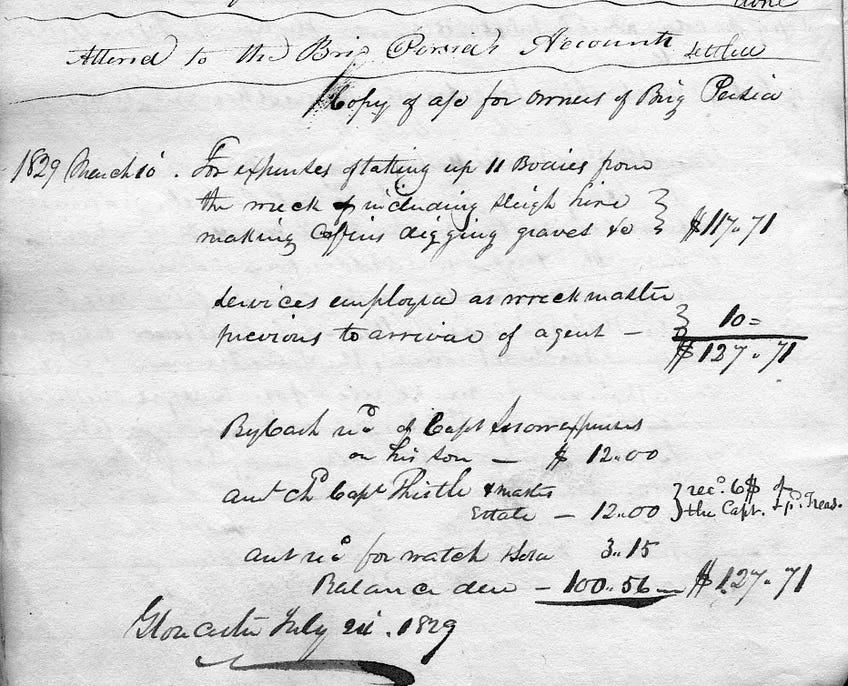 Attend to the Brig Persia's Accounts settled
Copy of a/c for owners of Brig Persia
1829 March 10. For expenses of taking up 11 Bodies from
the wreck of including sleigh hire
making Coffins digging graves &c $117.71
Services employed as wreckmaster
previous to arrival of agent — 10=
$127.71
By Cash recd of Capt Snow expenses
on his son — $ 12.00
amt chd Capt Thistle & mates
Estate — 12.00 recd. 6$ of
the Capt. & pd. Treas.
amt recd for watch sold 3.15
Balance due — 100.56 — $127.71
Gloucester July 1829